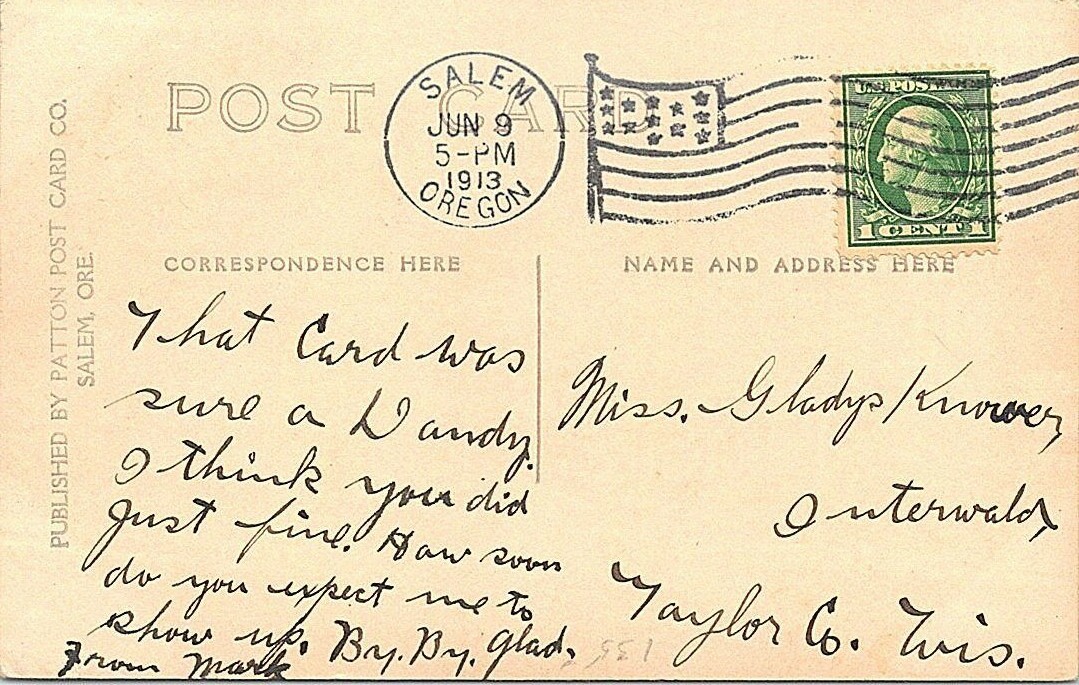 POST CARD
SALEM
JUN 9
5-PM
1913
OREGON
U.S. POSTAGE
1 CENT 1
PUBLISHED BY PATTON POST CARD CO.
SALEM, ORE.
CORRESPONDENCE HERE
NAME AND ADDRESS HERE
That Card was
sure a Dandy.
I think you did
just fine. How soon
do you expect me to
show up. By. By. Glad.
From Mark
Miss. Gladys Knower,
Interwald,
Taylor Co. Wis.